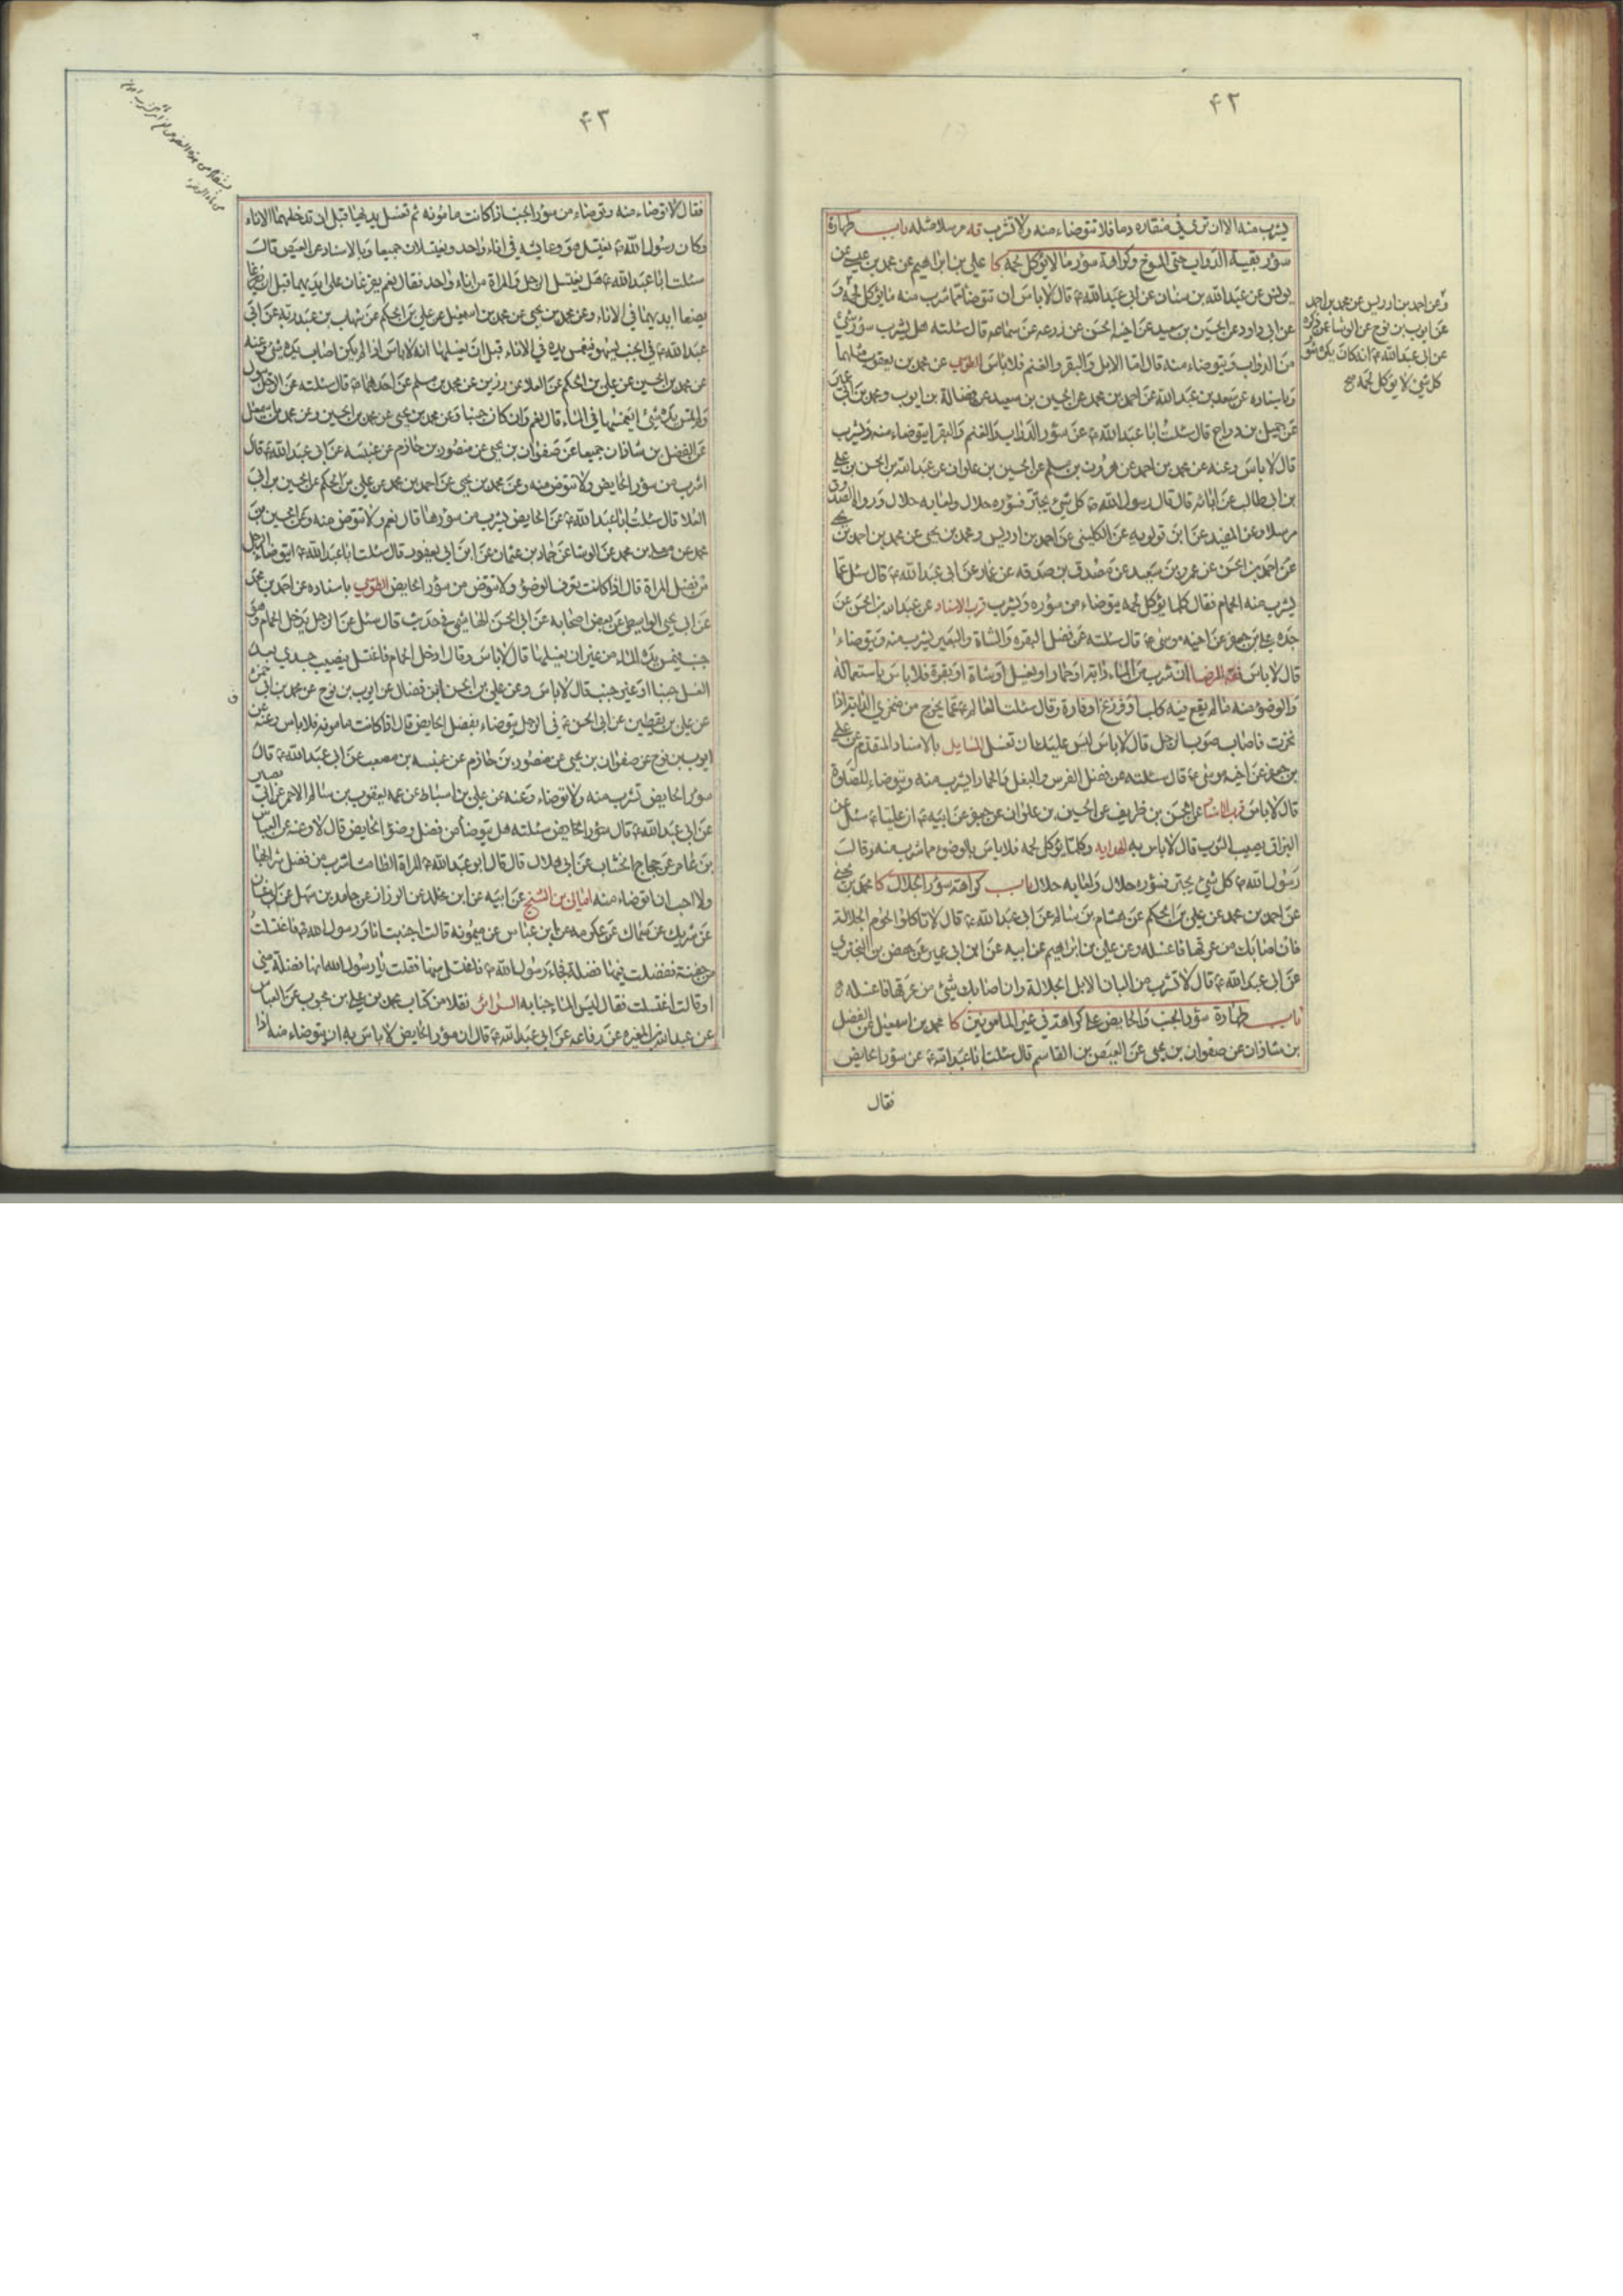 ۴۲
يشرب منه الا ان ترى في منقاره دما فلا تتوضاء منه ولا تشرب قه مرسلا مثله باب طهارة
سؤر بقية الدواب حتى المسوخ وكراهة سؤر ما لا يؤكل لحمه كا علي بن ابراهيم عن محمد بن عيسى عن
يونس عن عبدالله بن سنان عن ابي عبدالله ع قال لا باس ان تتوضا مما شرب منه ما يؤكل لحمه و
عن ابي داود عن الحسين بن سعيد عن اخيه الحسن عن زرعه عن سماعه قال سئلته هل يشرب سؤر شئ
من الدواب ويتوضاء منه قال اما الابل والبقر والغنم فلا باس الطوسي عن محمد بن يعقوب مثلهما
وباسناده عن سعد بن عبدالله عن احمد بن محمد عن الحسين بن سعيد عن فضالة بن ايوب ومحمد بن ابي عمير
عن جميل بن دراج قال سئلت ابا عبدالله ع عن سؤر الدواب والغنم والبقر ايتوضاء منه ويشرب
قال لا باس وعنه عن محمد بن احمد عن هرون بن مسلم عن الحسين بن علوان عن عبدالله بن الحسن بن علي
بن ابي طالب عن ابائه قال قال رسول الله ص كل شئ يجتر فسؤره حلال ولعابه حلال ورواه الصدوق
مرسلا وعن المفيد عن ابن قولويه عن الكليني عن احمد بن ادريس ومحمد بن يحيى عن محمد بن احمد بن يحيى
عن احمد بن الحسن عن عمرو بن سعيد عن مصدق بن صدقه عن عمار عن ابي عبدالله ع قال سئل عما
يشرب منه الحمام فقال كلما يؤكل لحمه يتوضاء من سؤره ويشرب قرب الاسناد عن عبدالله بن الحسن عن
جده علي بن جعفر عن اخيه موسى ع قال سئلته عن فضل البقره والشاة والبعير يشرب منه ويتوضاء
قال لا باس فقه الرضا ان شرب من الماء دابة او حمار او بغل او شاة او بقرة فلا باس باستعماله
والوضوء منه ما لم يقع فيه كلب او وزغ او فارة وقال سئلت العالم ع عما يخرج من منخري الدابة اذا
نخرت فاصاب ثوب الرجل قال لا باس ليس عليك ان تغسل المسايل بالاسناد المتقدم عن علي
بن جعفر عن اخيه موسى ع قال سئلته عن فضل الفرس والبغل والحمار ايشرب منه ويتوضاء للصلوة
قال لا باس قرب الاسناد عن الحسن بن ظريف عن الحسين بن علوان عن جعفر عن ابيه ع ان عليا ع سئل عن
البزاق يصيب الثوب قال لا باس به الهدايه وكلما يؤكل لحمه فلا باس بالوضوء مما شرب منه وقال
رسول الله ص كل شئ يجتر فسؤره حلال ولعابه حلال باب كراهة سؤر الجلال كا محمد بن يحيى
عن احمد بن محمد عن علي بن الحكم عن هشام بن سالم عن ابي عبدالله ع قال لا تاكلوا لحوم الجلالة
فان اصابك من عرقها فاغسله وعن علي بن ابراهيم عن ابيه عن ابن ابي عمير عن حفص بن البختري
عن ابي عبدالله ع قال لا تشرب من البان الابل الجلالة وان اصابك شئ من عرقها فاغسله
باب طهارة سؤر الجنب والحايض على كراهة في غير المامونين كا محمد بن اسمعيل عن الفضل
بن شاذان عن صفوان بن يحيى عن العيص بن القاسم قال سئلت ابا عبدالله ع عن سؤر الحايض
فقال
وعن احمد بن ادريس عن محمد بن احمد
عن ايوب بن نوح عن الوشا عمن ذكره
عن ابي عبدالله ع انه كان يكره سؤر
كل شئ لا يؤكل لحمه صح
۴۳
فقال لا توضاء منه وتوضاء من سؤر الجنب اذا كانت مامونه ثم تغسل يديها قبل ان تدخلهما الاناء
وكان رسول الله ص يغتسل هو وعايشه في اناء واحد ويغتسلان جميعا وبالاسناد عن العيص قال
سئلت ابا عبدالله ع هل يغتسل الرجل والمراة من اناء واحد فقال نعم يفرغان على ايديهما قبل ان
يضعا ايديهما في الاناء وعن محمد بن يحيى عن محمد بن اسمعيل عن علي بن الحكم عن شهاب بن عبد ربه عن ابي
عبدالله ع في الجنب يسهو فيغمس يده في الاناء قبل ان يغسلها انه لا باس اذا لم يكن اصاب يده شئ وعنه
عن محمد بن الحسين عن علي بن الحكم عن العلا بن رزين عن محمد بن مسلم عن احدهما ع قال سئلته عن الرجل يبول
ولم يمس يده شئ ايغمسها في الماء قال نعم وان كان جنبا وعن محمد بن يحيى عن محمد بن الحسين وعن محمد بن اسمعيل
عن الفضل بن شاذان جميعا عن صفوان بن يحيى عن منصور بن حازم عن عنبسه عن ابي عبدالله ع قال
اشرب من سؤر الحايض ولا توض منه وعن محمد بن يحيى عن احمد بن محمد عن علي بن الحكم عن الحسين بن ابي
العلا قال سئلت ابا عبدالله ع عن الحايض يشرب من سؤرها قال نعم ولا تتوض منه وعن الحسين بن
محمد عن معلى بن محمد عن الوشا عن حماد بن عثمان عن ابن ابي يعفور قال سئلت ابا عبدالله ع ايتوضاء الرجل
من فضل المراة قال اذا كانت تعرف الوضوء ولا تتوض من سؤر الحايض الطوسي باسناده عن احمد بن محمد
عن ابي يحيى الواسطي عن بعض اصحابه عن ابي الحسن الهاشمي في حديث قال سئل عن الرجل يدخل الحمام وهو
جنب فيمس يده الماء من غير ان يغسلها قال لا باس وقال ادخل الحمام فاغتسل فيصيب جسدي بعد
الغسل جنبا او غير جنب قال لا باس وعن علي بن الحسن ابن فضال عن ايوب بن نوح عن محمد بن ابي حمزة
عن علي بن يقطين عن ابي الحسن ع في الرجل يتوضاء بفضل الحايض قال اذا كانت مامونه فلا باس وعنه عن
ايوب بن نوح عن صفوان بن يحيى عن منصور بن حازم عن عنبسه بن مصعب عن ابي عبدالله ع قال
سؤر الحايض تشرب منه ولا توضاء وعنه عن علي بن اسباط عن عمه يعقوب بن سالم الاحمر عن ابي بصير
عن ابي عبدالله ع قال سئلته هل يتوضا من فضل وضوء الحايض قال لا وعنه عن العباس
بن عامر عن حجاج الخشاب عن ابي هلال قال قال ابو عبدالله ع المراة الطامث اشرب من فضل شرابها
ولا احب ان اتوضاء منه امالي بن الشيخ عن ابيه عن ابن مخلد عن الرزاز عن حامد بن سهل عن ابي غسان
عن شريك عن سماك عن عكرمه عن ابن عباس عن ميمونه قالت اجنبت انا ورسول الله ص فاغتسلت
من جفنة ففضلت فيها فضلة فجاء رسول الله ص فاغتسل منها فقلت يا رسول الله انها فضلة مني
او قالت اغتسلت فقال ليس الماء جنابه السرائر نقلا من كتاب محمد بن علي بن محبوب عن العباس
عن عبدالله بن المغيره عن رفاعه عن ابي عبدالله ع قال ان سؤر الحايض لا باس به ان يتوضاء منه اذا